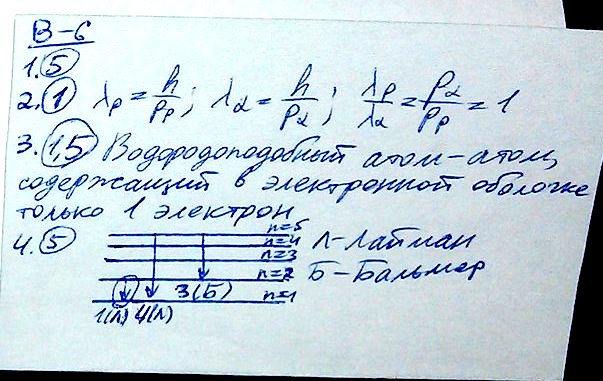 В-6
1. 5
2. 1 λp = h/Pp; λα = h/Pα; λp/λα = Pα/Pp = 1
3. 1,5 Водородоподобный атом-атом,
содержащий в электронной оболочке
только 1 электрон
4. 5
n=5
n=4 Л-Лайман
n=3
n=2 Б-Бальмер
3(Б) n=1
1(Л) 4(Л)